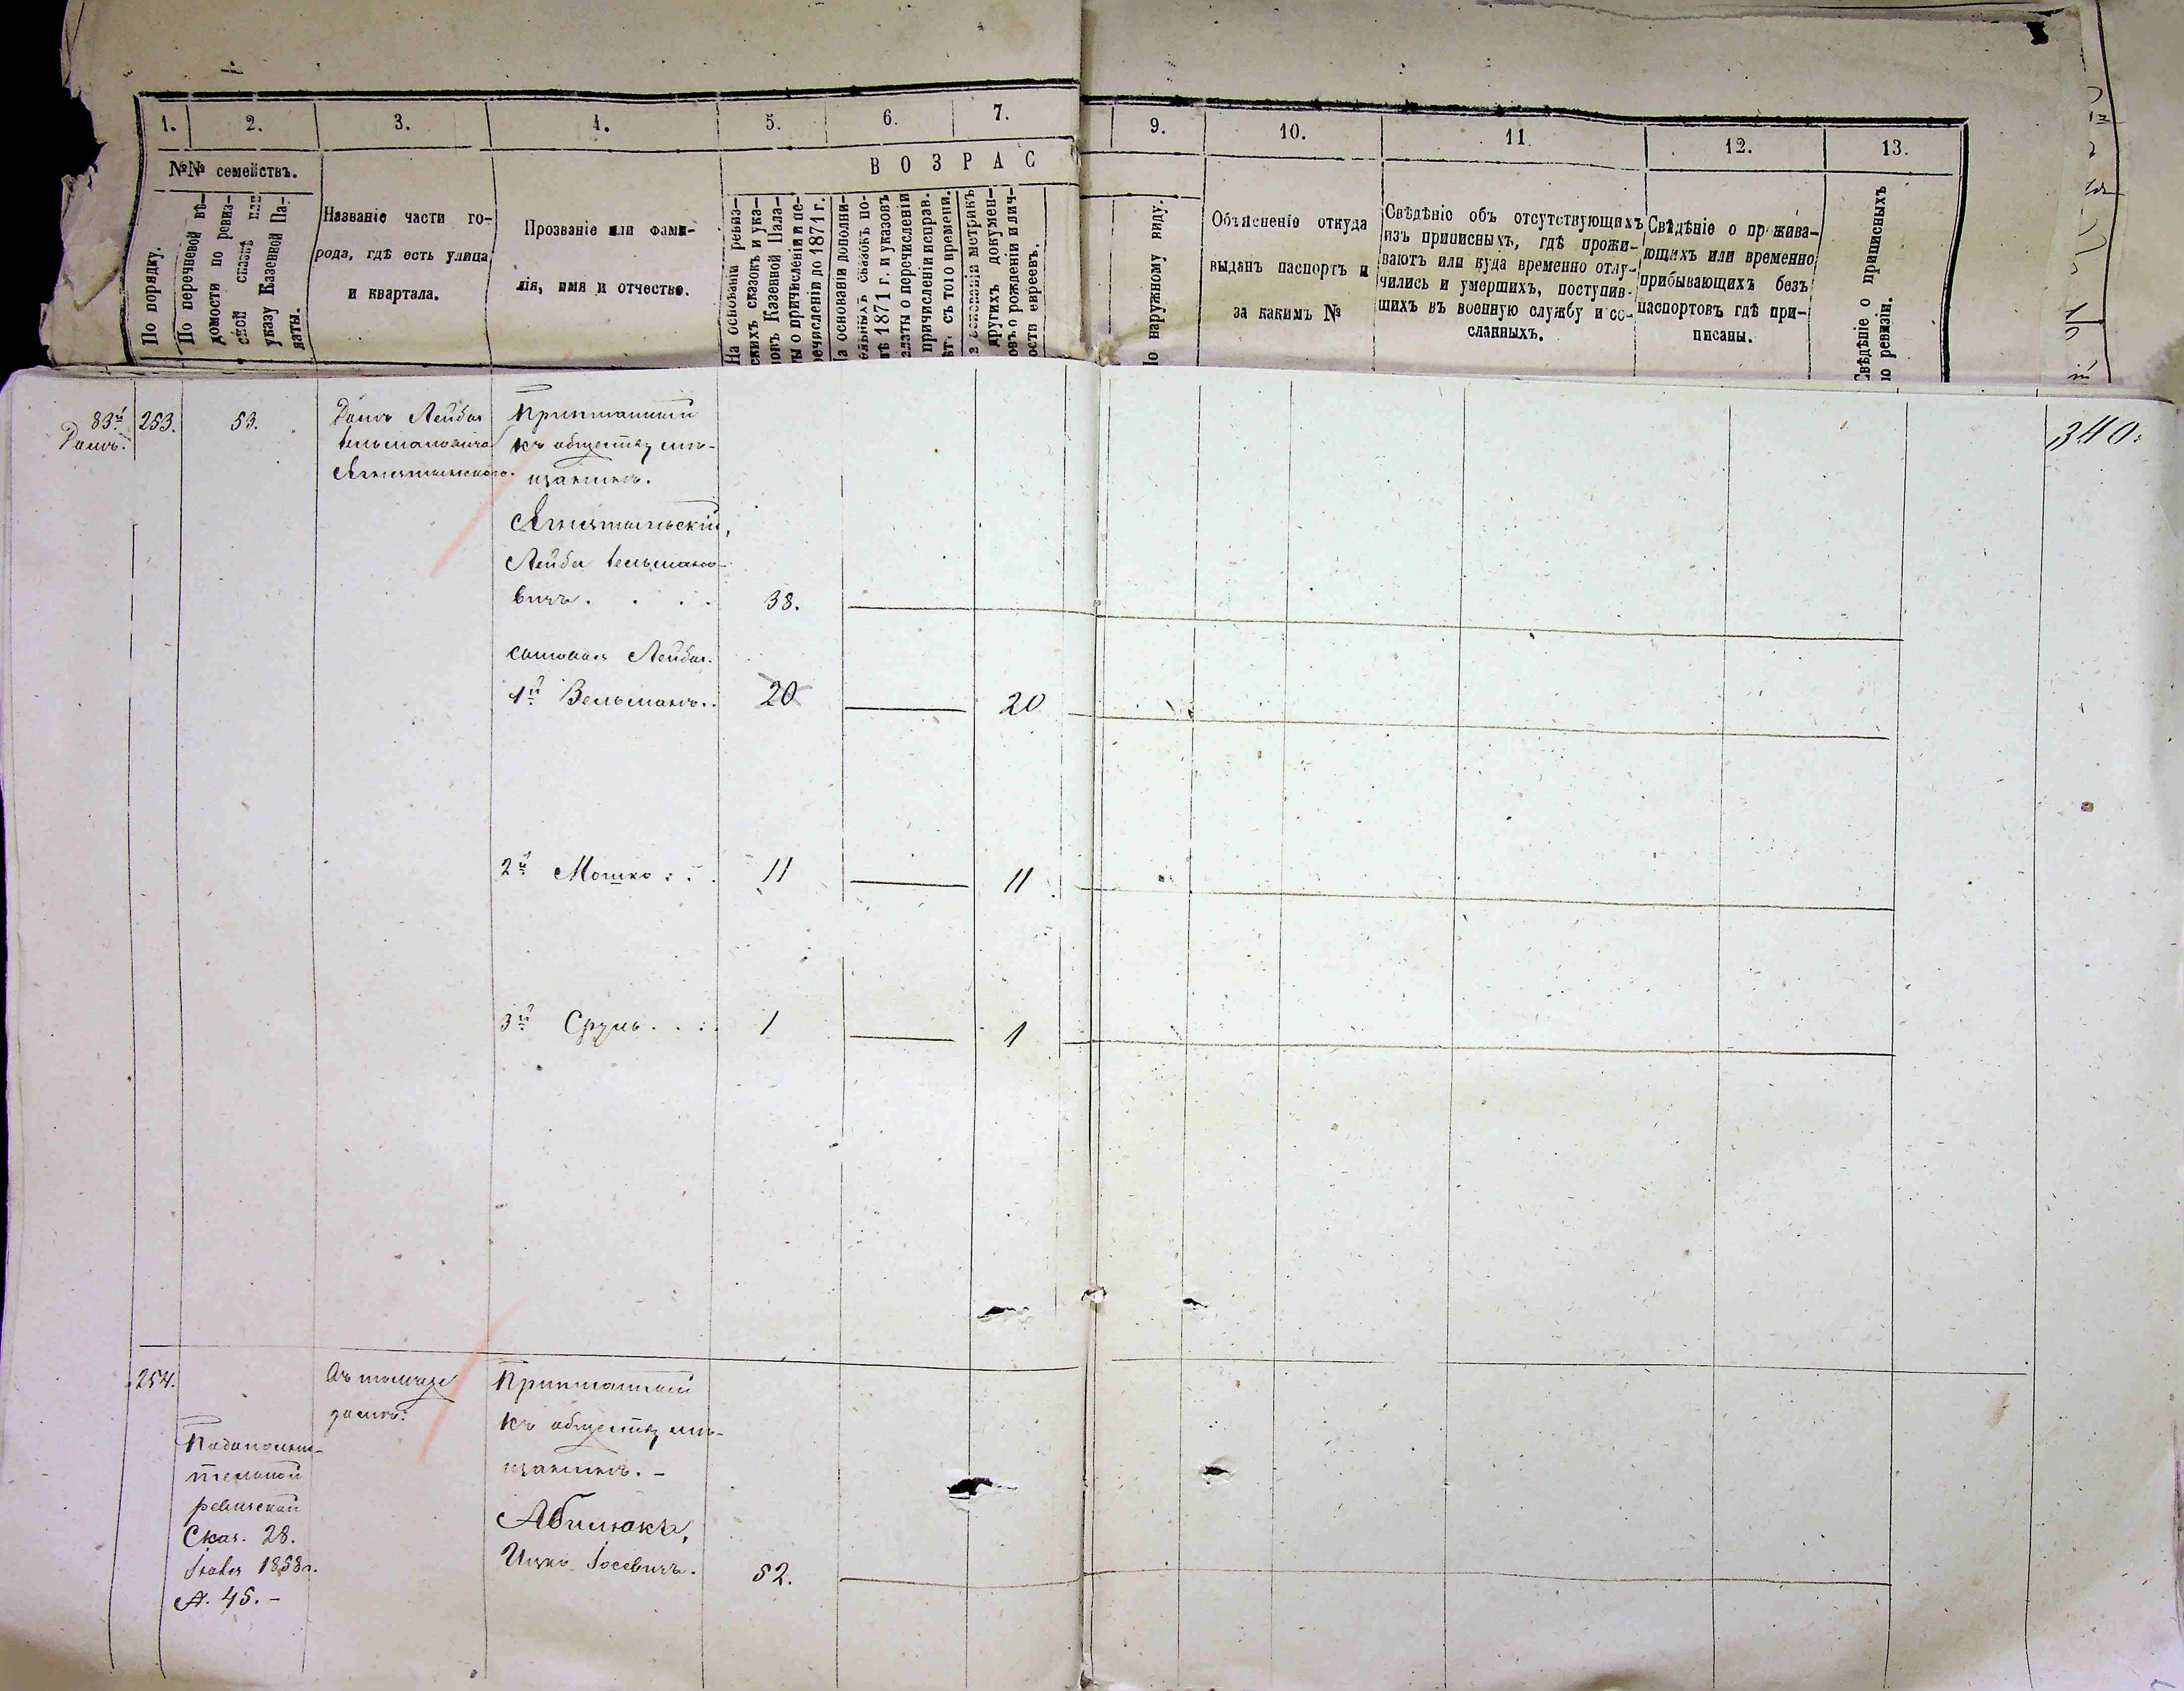 1.
2.
3.
4.
5.
6.
7.
9.
10.
11
12.
13.
№№ семействъ.
По порядку.
По перечневой вѣ-
домости по ревиз-
ской сказкѣ или
указу Казенной Па-
латы.
Названіе части го-
рода, гдѣ есть улица
и квартала.
Прозваніе или фами-
лія, имя и отчество.
ВОЗРАС
На основаніи ревиз-
скихъ сказокъ и ука-
зовъ Казенной Пала-
ты о причисленіи и пе-
речисленіи до 1871 г.
а основаніи дополни-
ельныхъ сказокъ по-
лѣ 1871 г. и указовъ
алаты о перечисленіи
причисленіи исправ.
ѣт. съ того времени.
а основаніи метрикъ
другихъ докумен-
овъ о рожденіи и лич-
ости евреевъ.
По наружному виду.
Объясненіе откуда
выданъ паспортъ и
за какимъ №
Свѣдѣніе объ отсутствующихъ
изъ приписныхъ, гдѣ прожи-
ваютъ или куда временно отлу-
чились и умершихъ, поступив-
шихъ въ военную службу и сс-
сланныхъ.
Свѣдѣніе о прожива-
ющихъ или временно
прибывающихъ безъ
паспортовъ гдѣ при-
писаны.
Свѣдѣніе о приписныхъ
по ревизіи.
83й
Домъ.
253.
53.
Домъ Лейбы
340.
къ обществу мѣ-
щанинъ.
Лейба
вичъ . . . .
38.
сыновья Лейбы.
1й Вельманъ. .
20
20
2й Мошко : . .
11
11
3й Сруль . . .
1
1
254.
Въ
домѣ.
По дополни-
тельной
ревизской
Сказ. 28.
1858г.
№. 45. -
къ обществу мѣ-
щанинъ. -
Абимокъ,
Ицко Іосевичъ.
52.